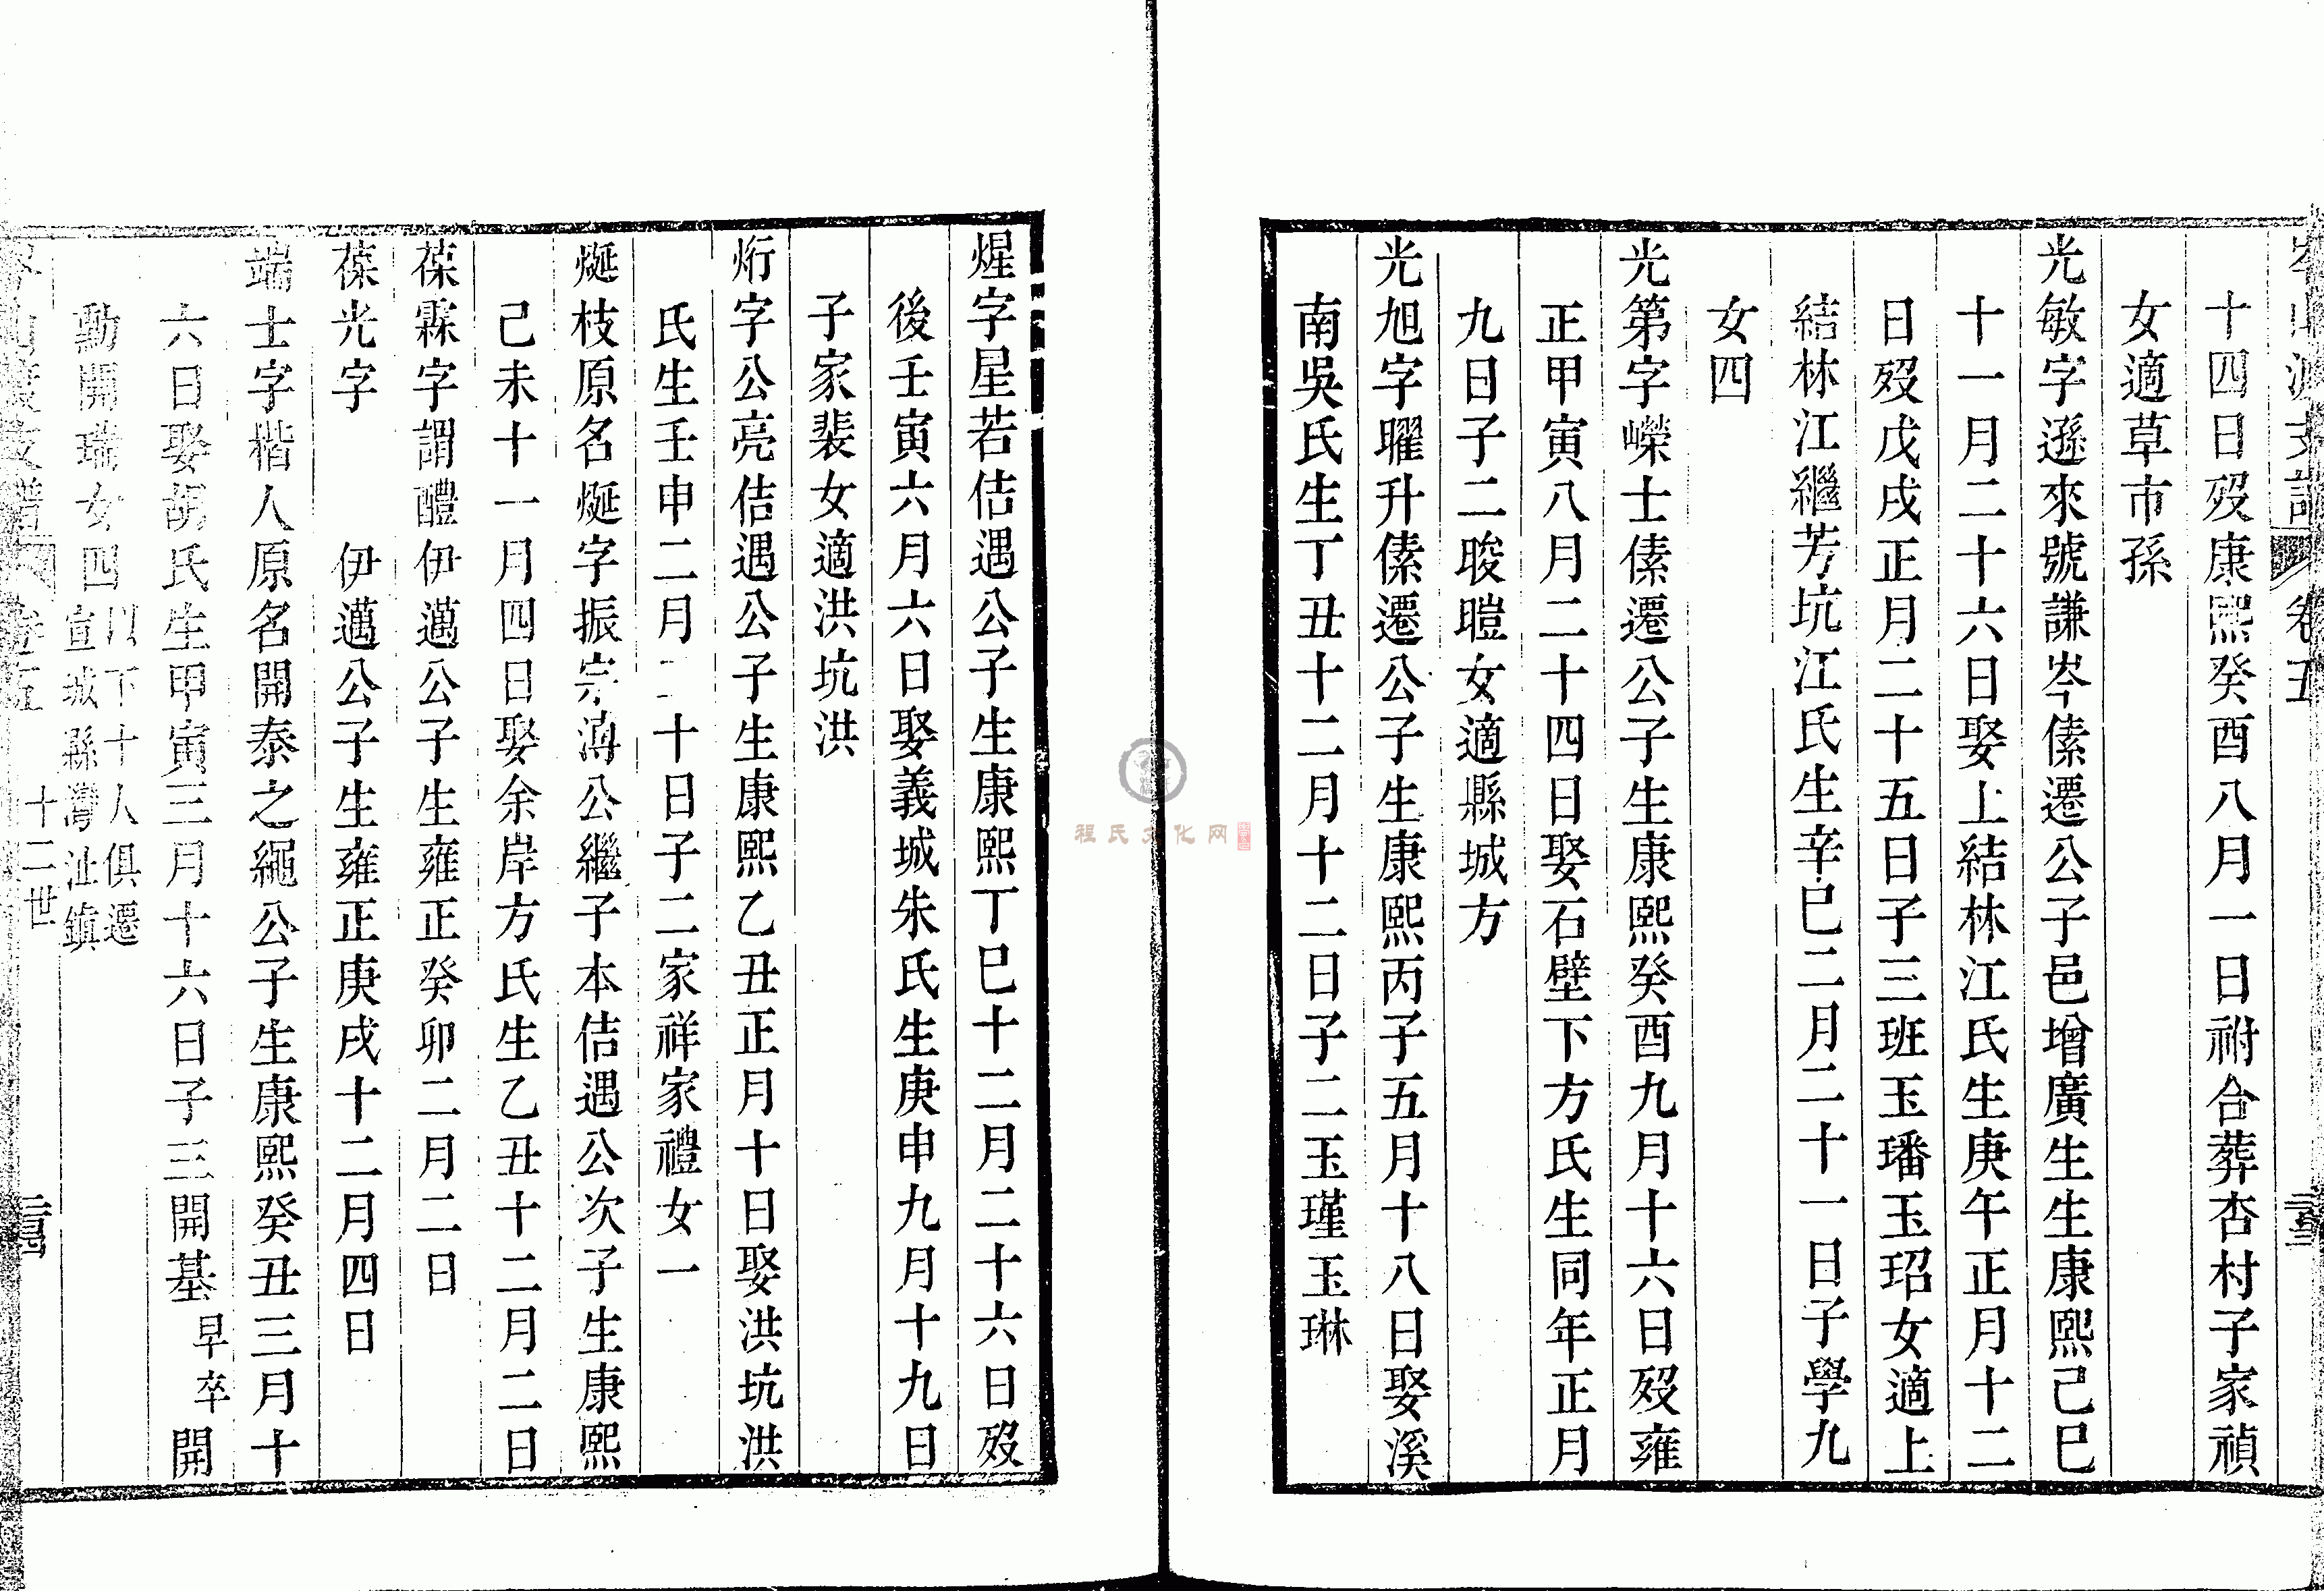 岑山渡支譜 卷五
十四日歿康熙癸酉八月一日祔合葬杏村子家禎
女適草市孫
光敏字遜來號謙岑傃遷公子邑增廣生生康熙己巳
十一月二十六日娶上結林江氏生庚午正月十二
日歿戊戌正月二十五日子三班玉璠玉玿女適上
結林江繼芳坑江氏生辛巳二月二十一日子學九
女四
光第字嶸士傃遷公子生康熙癸酉九月十六日歿雍
正甲寅八月二十四日娶石壁下方氏生同年正月
九日子二晙暟女適縣城方
光旭字曜升傃遷公子生康熙丙子五月十八日娶溪
南吳氏生丁丑十二月十二日子二玉瑾玉琳
煋字星若佶遇公子生康熙丁巳十二月二十六日歿
後壬寅六月六日娶義城朱氏生庚申九月十九日
子家裴女適洪坑洪
烆字公亮佶遇公子生康熙乙丑正月十日娶洪坑洪
氏生壬申二月二十日子二家祥家禮女一
烻枝原名烻字振宗溥公繼子本佶遇公次子生康熙
己未十一月四日娶余岸方氏生乙丑十二月二日
葆霖字謂醴伊邁公子生雍正癸卯二月二日
葆光字 伊邁公子生雍正庚戌十二月四日
端士字楷人原名開泰之繩公子生康熙癸丑三月十
六日娶胡氏生甲寅三月十六日子三開基早卒開
勳開瑞女四以下十人俱遷宣城縣灣沚鎮
岑山渡支譜 卷五 十二世
程氏文化网